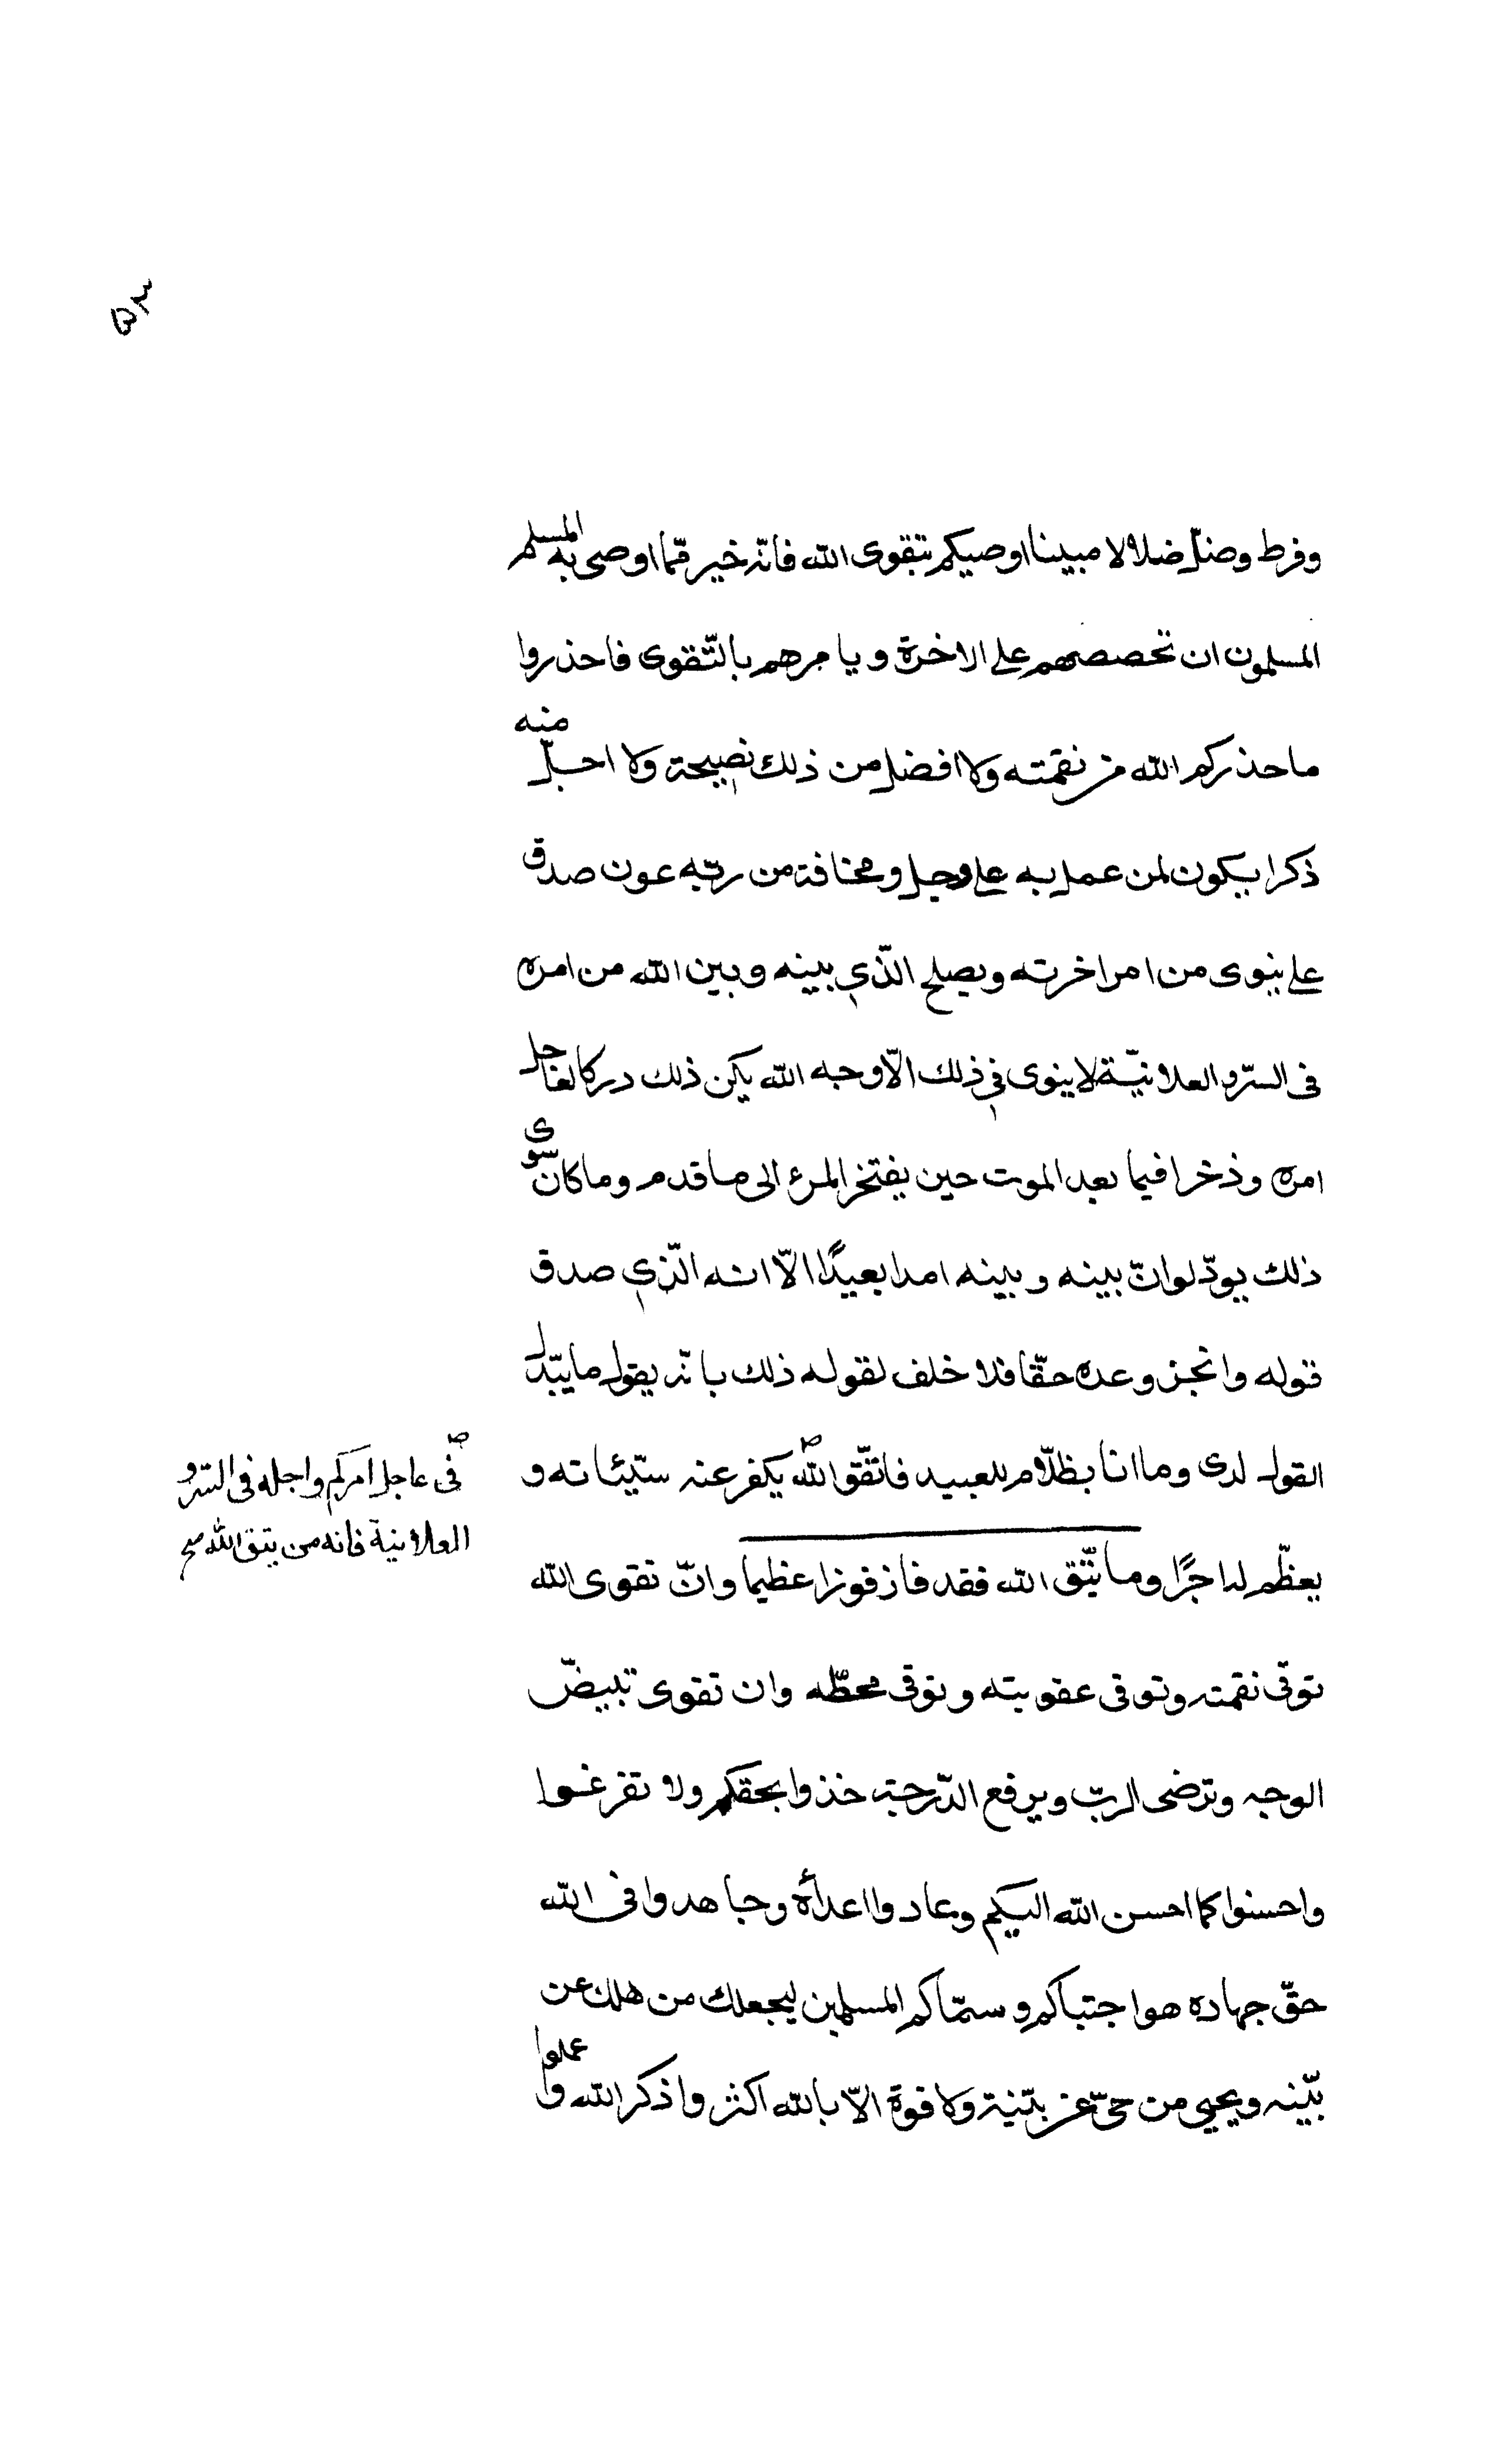 ٥٣
وفرط وضلّ ضلالا مبينا اوصيكم بتقوى الله فانّه خير ممّا اوصى به المسلم
المسلمون ان تحصصهم على الاخرة ويامرهم بالتّقوى فاحذروا
ما حذركم الله من نقمته ولا افضل من ذلك نصيحة ولا اجلّ منه
ذكرا يكون لمن عمل به على وجل ومخافة من ربّه عون صدق
على ينوى من امر اخرته ويصلح الّذي بينه وبين الله من امره
فى السرّ والعلانيّة لا ينوى في ذلك الّا وجه الله يكن ذلك دركا لعاجل
امره وذخرا فيما بعد الموت حين يفتخر المرء الى ما قدم وما كان سوى
ذلك يودّ لوانّ بينه وبينه امدا بعيدًا الّا انه الّذي صدق
قوله وانجز وعده حقّا فلا خلف لقوله ذلك بانّه يقول ما يبّدل
القول لدى وما انا بظلّام للعبيد فاتّقو الله يكفر عنه سيّئاته و
فى عاجل امركم واجله فى السّر و
العلانية فانه من يتق الله صح
يعظّم له اجرًا وما يتّق الله فقد فاز فوزا عظيما وانّ تقوى الله
توقّى نقمته وتوقى عقوبته وتوقى محطّه وان تقوى تبيضّ
الوجه وترضى الربّ ويرفع الدّرجة خذوا بحقكم ولا تفرغوا
واحسنوا كما احسن الله اليكم وعادوا اعدأه وجاهدوا فى الله
حقّ جهاده هو اجتباكم وسمّاكم المسلمين ليجعلك من هلك عن
بيّنه ويحيى من حىّ عن بيّنية ولا قوة الّا بالله اكثر واذكر الله واعملوا